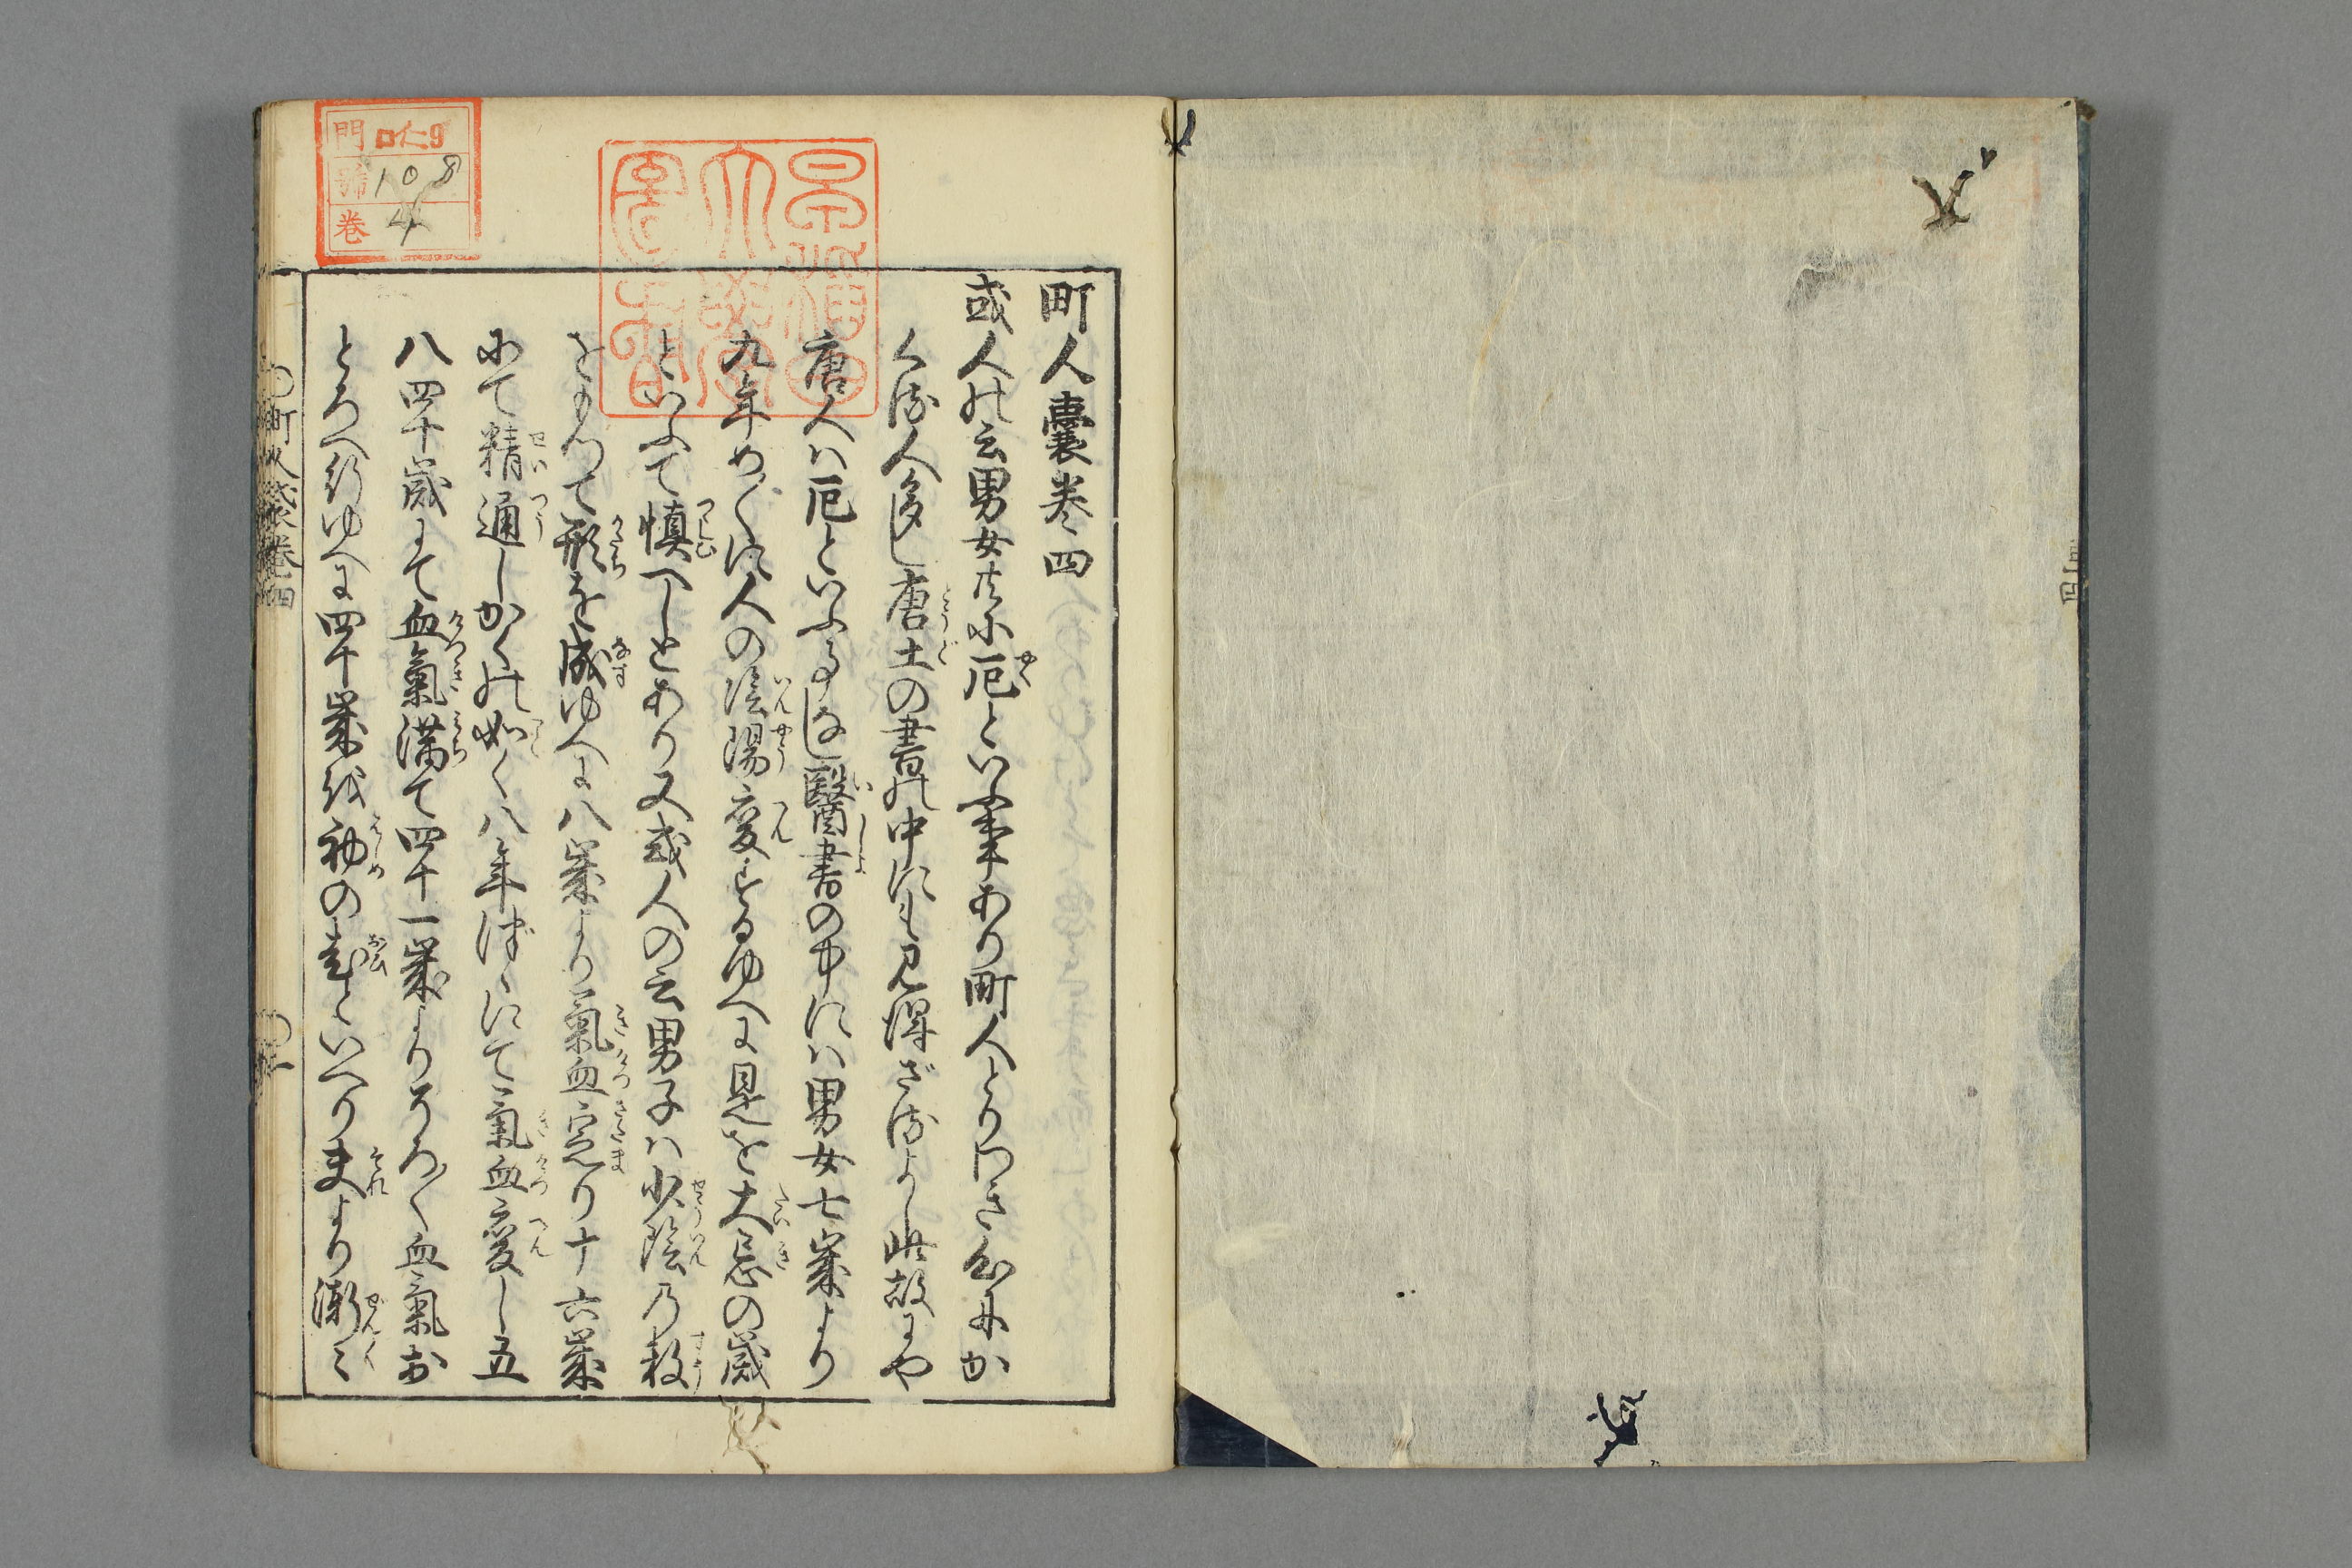 町人囊巻四
或人の云男女共に厄といふ事あり町人とりわき
く済人多し唐土の書の中にも見得ざるよし此故にや
唐人は厄といふ事なし醫書の中には男女七歳より
九年めくに人の陰陽変ずるゆへに是を大忌の歳
といふて慎へしとあり又或人の云男子は少陰乃数
をもつて形を成ゆへに八歳より氣血定り十六歳
にて精通しかくの如く八年づゝにて氣血変し五
八四十歳にて血氣満て四十一歳よりそろ〳〵血氣お
とろへ行ゆへに四十歳を初の老といへり夫より漸〻
町人袋巻四
門 ロ仁9
號 108
巻 4